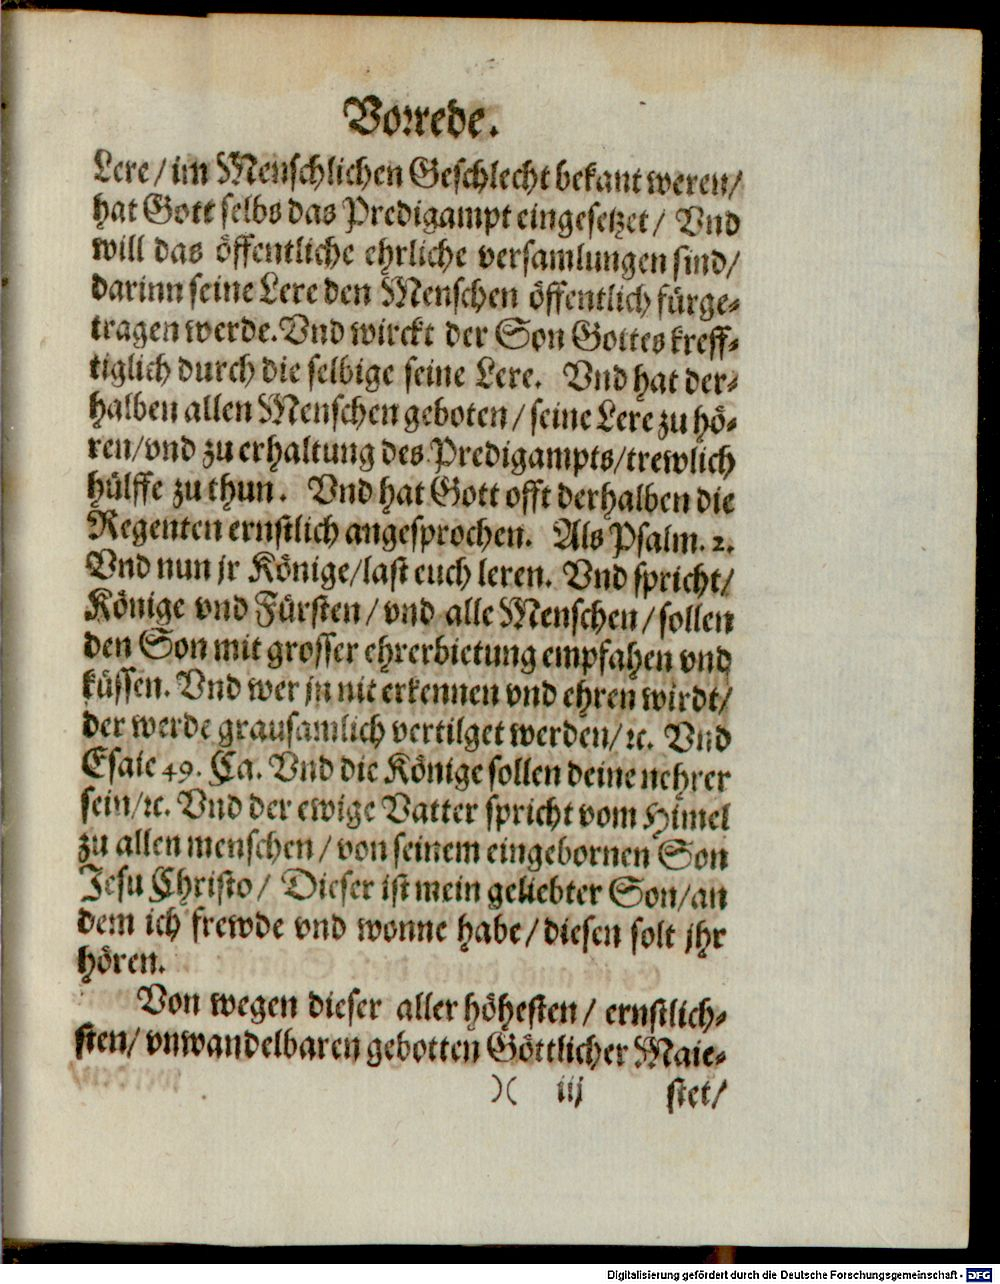 Vorrede.
Lere / im Menschlichen Geschlecht bekant weren /
hat Gott selbs das Predigampt eingesetzet / Vnd
will das öffentliche ehrliche versamlungen sind /
darinn seine Lere den Menschen öffentlich fürge-
tragen werde. Vnd wirckt der Son Gottes kreff-
tiglich durch die selbige seine Lere. Vnd hat der-
halben allen Menschen geboten / seine Lere zu hö-
ren / vnd zu erhaltung des Predigampts / trewlich
hülffe zu thun. Vnd hat Gott offt derhalben die
Regenten ernstlich angesprochen. Als Psalm. 2.
Vnd nun jr Könige / last euch leren. Vnd spricht /
Könige vnd Fürsten / vnd alle Menschen / sollen
den Son mit grosser ehrerbietung empfahen vnd
küssen. Vnd wer jn nit erkennen vnd ehren wirdt /
der werde grausamlich vertilget werden / ꝛc. Vnd
Esaie 49. Ca. Vnd die Könige sollen deine nehrer
sein / ꝛc. Vnd der ewige Vatter spricht vom Himel
zu allen menschen / von seinem eingebornen Son
Jesu Christo / Dieser ist mein geliebter Son / an
dem ich frewde vnd wonne habe / diesen solt jhr
hören.
Von wegen dieser aller höhesten / ernstlich-
sten / vnwandelbaren gebotten Göttlicher Maie-
)( iij stet /
Digitalisierung gefördert durch die Deutsche Forschungsgemeinschaft - DFG